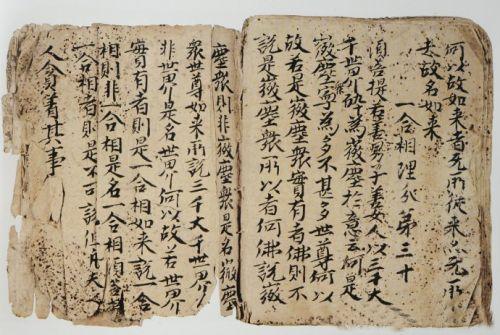 何以故如来者无所從来亦无所
去故名如来
一合相理分第三十
須菩提若善男子善女人以三千大
千世界碎為微塵於意云何是
微塵衆寧為多不甚多世尊何以
故若是微塵衆實有者佛則不
說是微塵衆所以者何佛說微
塵衆則非微塵衆是名微塵
衆世尊如来所說三千大千世界
非世界是名世界何以故若世界
實有者則是一合相如来說一合
相則非一合相是名一合相須菩
一合相者則是不可說但凡夫
人貪著其事